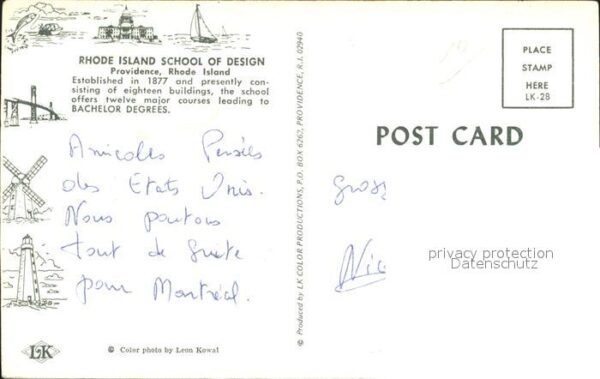 RHODE ISLAND SCHOOL OF DESIGN
Providence, Rhode Island
Established in 1877 and presently con-
sisting of eighteen buildings, the school
offers twelve major courses leading to
BACHELOR DEGREES.
Amicales Pensées
des Etats Unis.
Nous partons
tout de suite
pour Montréal.
LK
© Color photo by Leon Kowal
© Produced by LK COLOR PRODUCTIONS, P.O. BOX 6267, PROVIDENCE, R.I. 02940
PLACE
STAMP
HERE
LK-28
POST CARD
Nic
privacy protection
Datenschutz